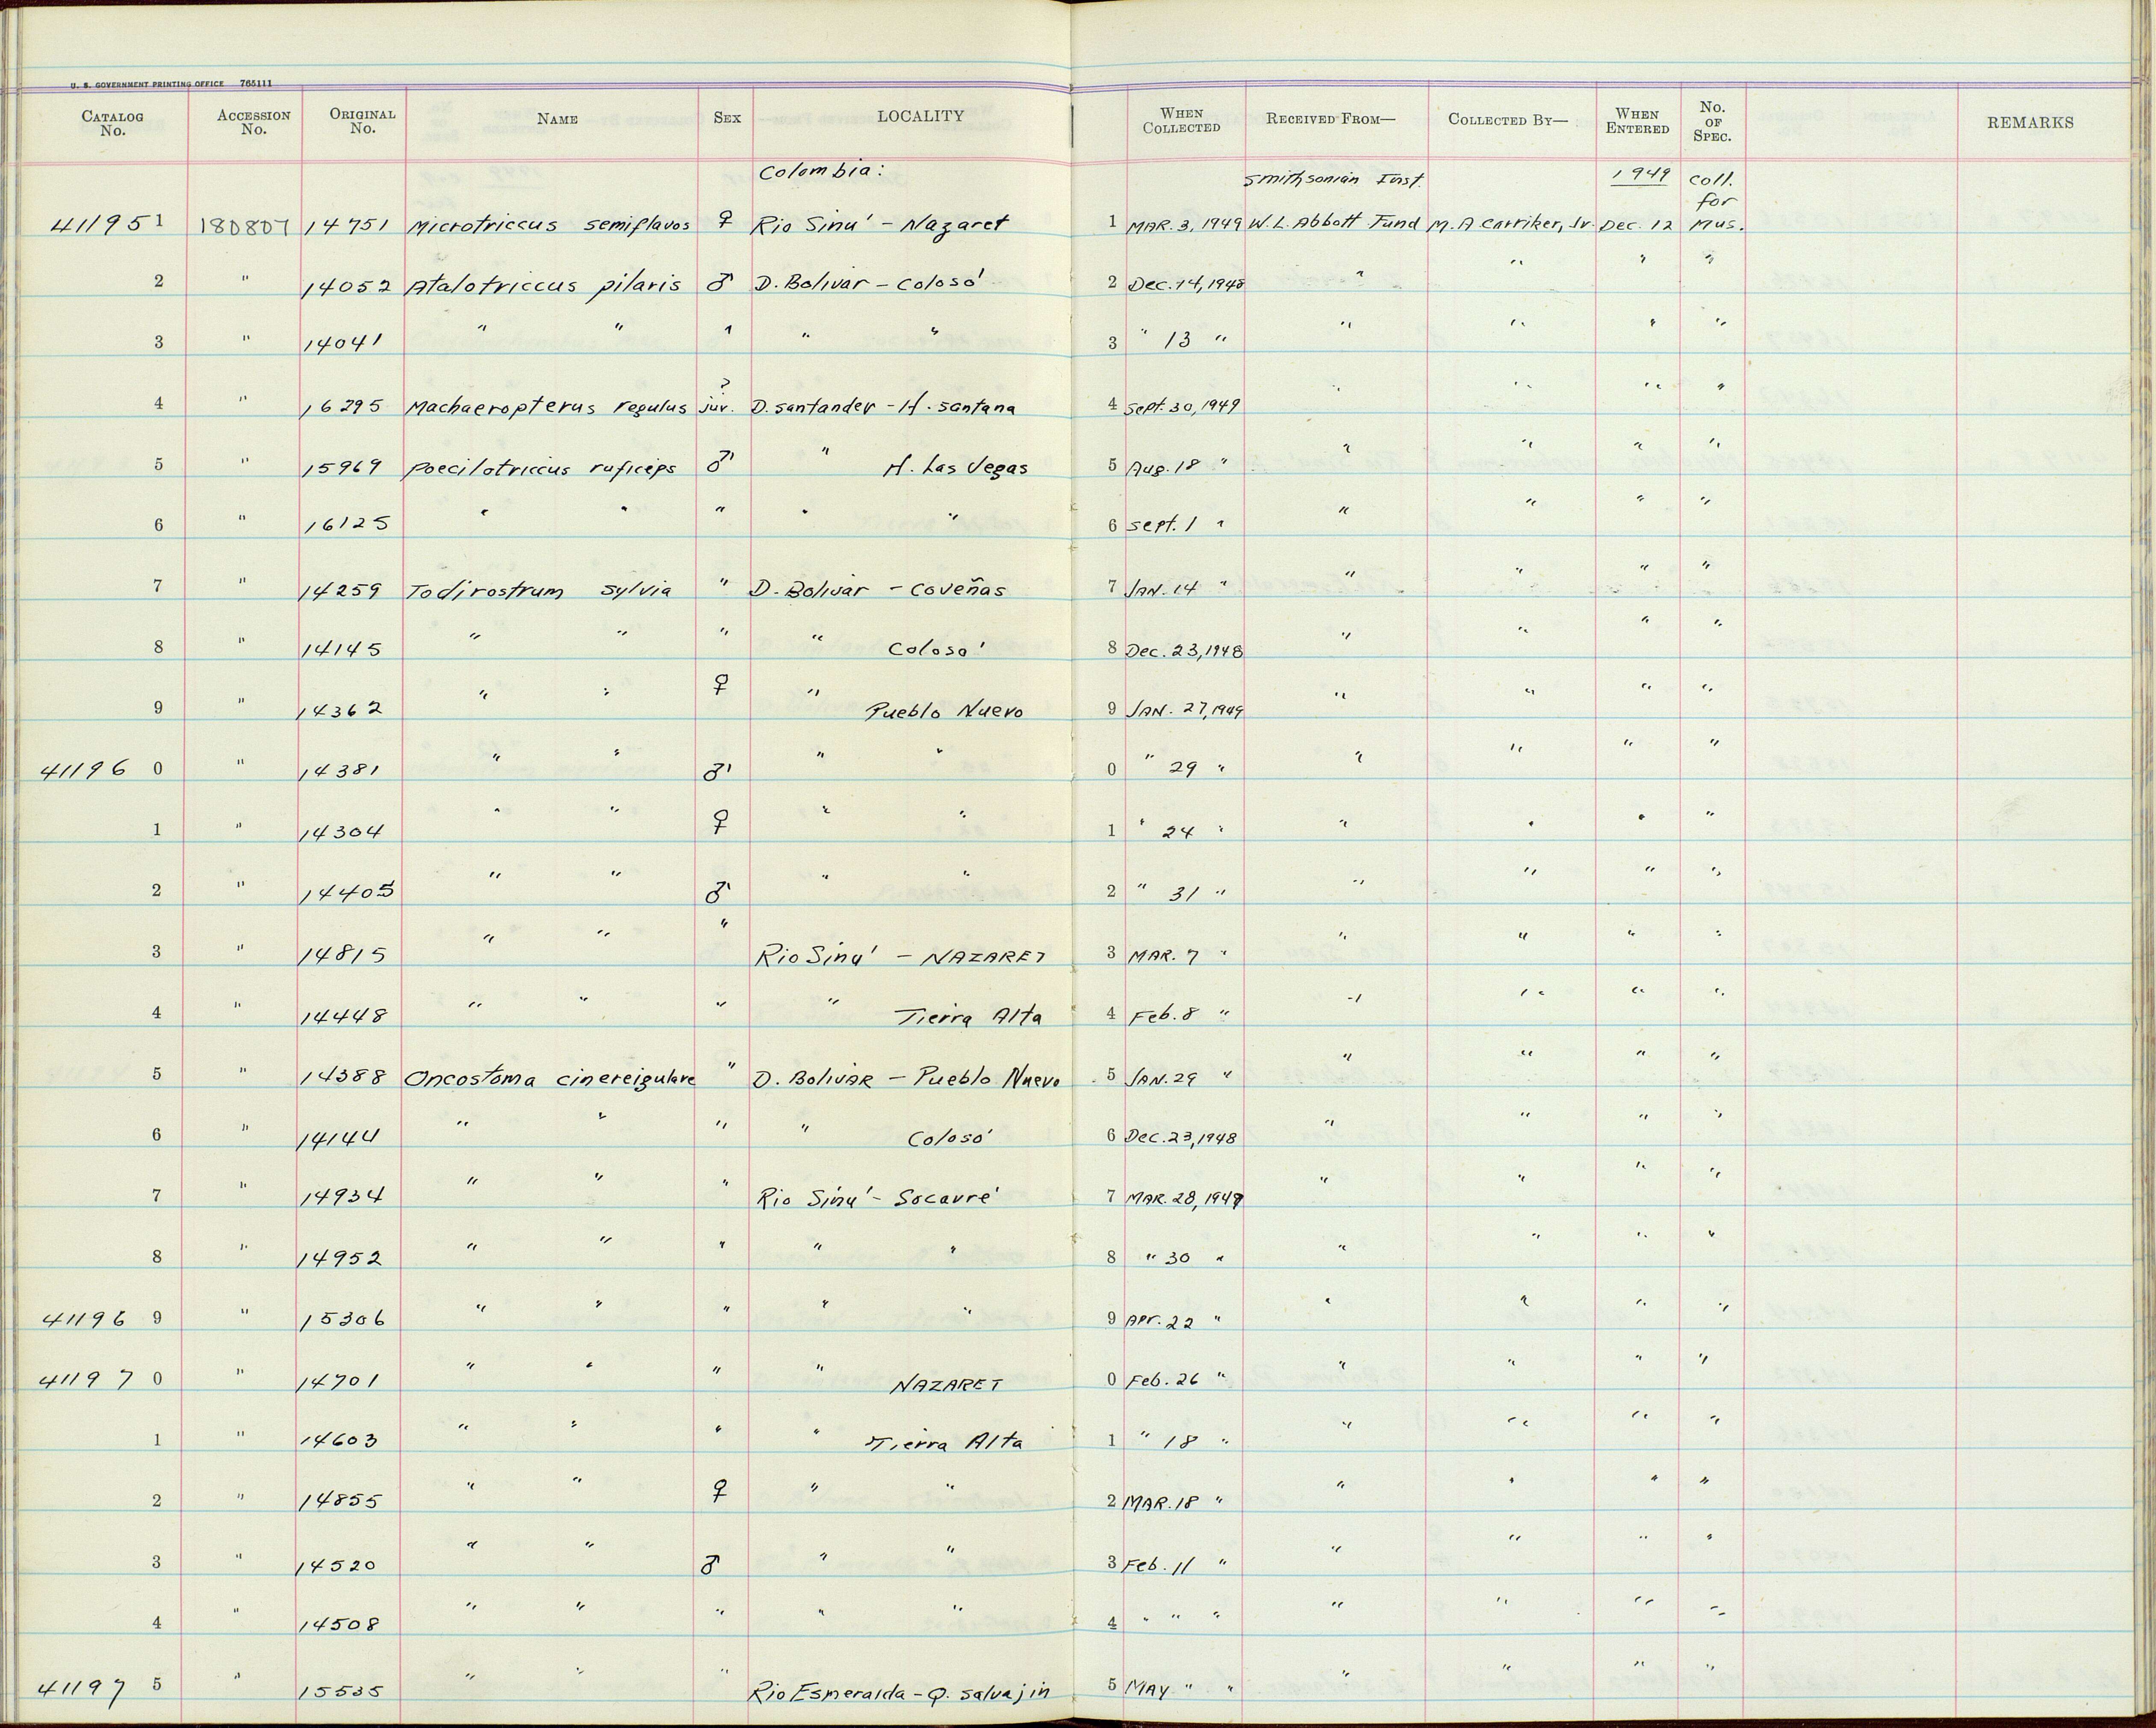 U. S. GOVERNMENT PRINTING OFFICE 765111
CATALOG No. ACCESSION No. ORIGINAL No. NAME SEX LOCALITY WHEN COLLECTED RECEIVED FROM— COLLECTED BY— WHEN ENTERED No. OF SPEC. REMARKS
Colombia: Smithsonian Inst. 1949 Coll. for
411951 180807 14751 Microtriccus semiflavos ♀ Rio Sinu' - Nazaret 1 MAR. 3, 1949 W. L. Abbott Fund M. A Carriker, Jr. Dec. 12 Mus.
2 " 14052 Atalotriccus pilaris ♂ D. Bolivar - Coloso' 2 Dec. 14, 1948 " " " "
3 " 14041 " " " " " 3 " 13 " " " " "
4 " 16295 Machaeropterus regulus ? juv. D. Santander - H. Santana 4 Sept. 30, 1949 " " " "
5 " 15969 Poecilotriccus ruficeps ♂ " H. Las Vegas 5 Aug. 18 " " " " "
6 " 16125 " " " " " 6 Sept. 1 " " " " "
7 " 14259 Todirostrum sylvia " D. Bolivar - Coveñas 7 JAN. 14 " " " " "
8 " 14145 " " " " Coloso' 8 Dec. 23, 1948 " " " "
9 " 14362 " " ♀ " Pueblo Nuevo 9 JAN. 27, 1949 " " " "
411960 " 14381 " " ♂ " " 0 " 29 " " " " "
1 " 14304 " " ♀ " " 1 " 24 " " " " "
2 " 14405 " " ♂ " " 2 " 31 " " " " "
3 " 14815 " " " Rio Sinu' - NAZARET 3 MAR. 7 " " " " "
4 " 14448 " " " " Tierra Alta 4 Feb. 8 " " " " "
5 " 14388 Oncostoma cinereigulare " D. BOLIVAR - Pueblo Nuevo 5 JAN. 29 " " " " "
6 " 14144 " " " " Coloso' 6 Dec. 23, 1948 " " " "
7 " 14934 " " " Rio Sinu' - Socavre' 7 MAR. 28, 1949 " " " "
8 " 14952 " " " " " 8 " 30 " " " " "
411969 " 15306 " " " " " 9 Apr. 22 " " " " "
411970 " 14701 " " " " NAZARET 0 Feb. 26 " " " " "
1 " 14603 " " " " Tierra Alta 1 " 18 " " " " "
2 " 14855 " " ♀ " " 2 MAR. 18 " " " " "
3 " 14520 " " ♂ " " 3 Feb. 11 " " " " "
4 " 14508 " " " " " 4 " " " " " " "
411975 " 15535 " " " Rio Esmeralda - Q. Salvajin 5 MAY " " " " " "